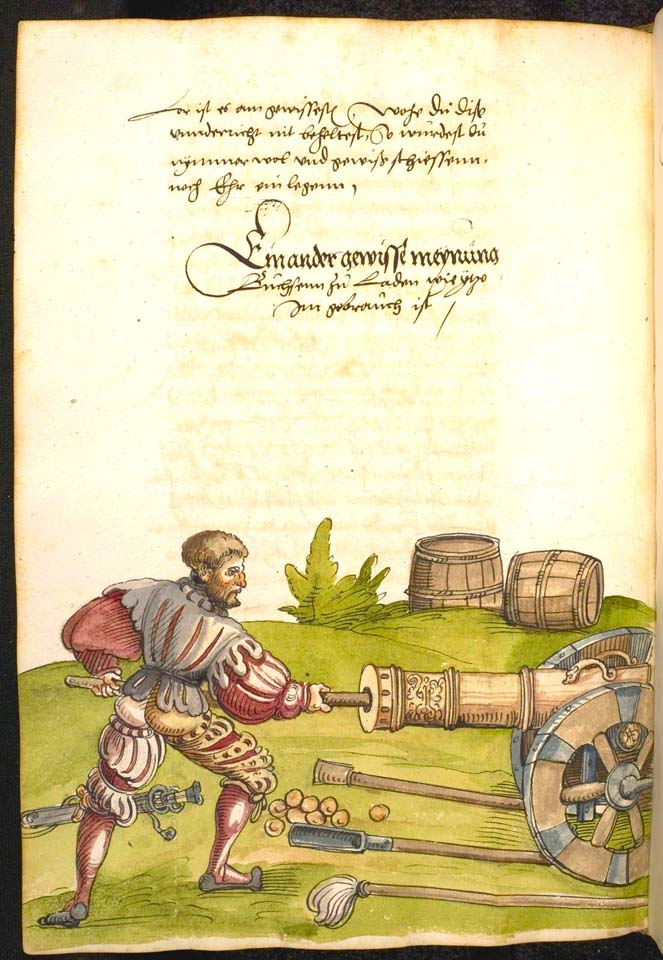 Lor ist es am gewissestē, Wohe du dise
vnnderricht nit beheltest, So würdest du
nymmer wol vnd gewiss schiessenn,
noch Ehr einlegenn,
Ein ander gewisse meynüng
Büchsenn zü Laden wie ytzo
Im gebraüch ist /